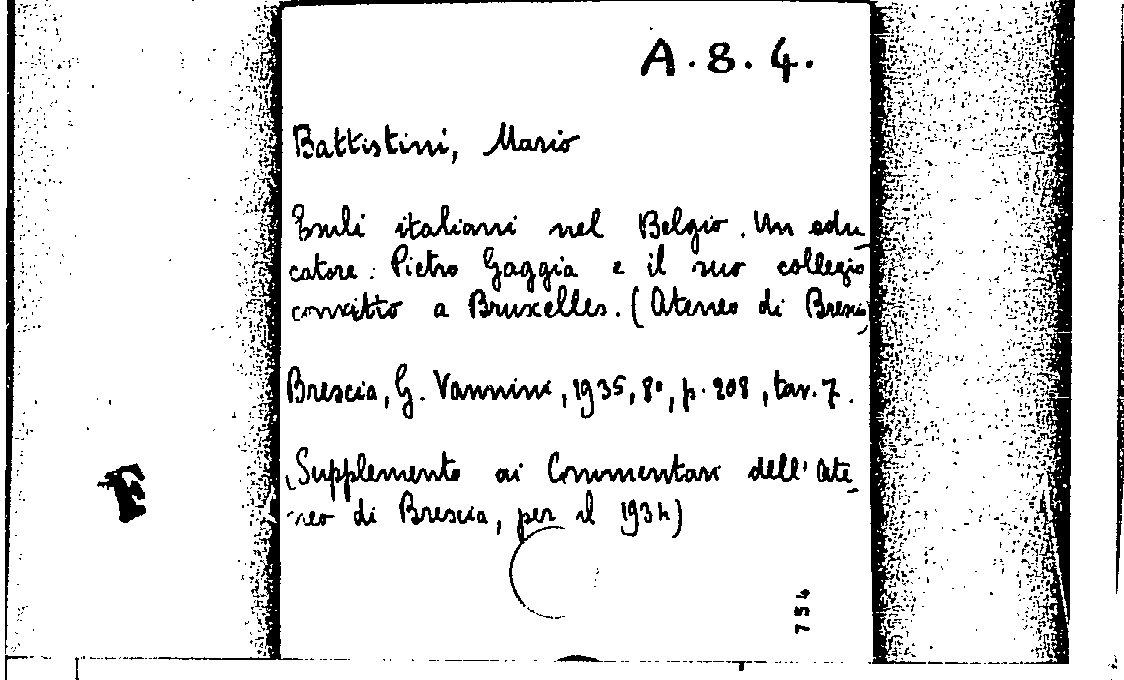 A.8.4.
Battistini, Mario
Esuli italiani nel Belgio. Un edu_
catore: Pietro Gaggia e il suo collegio
convitto a Bruxelles. (Ateneo di Brescia)
Brescia, G. Vannini, 1935, 8°, p. 208, tav. 7.
(Supplemento ai Commentari dell'Ate_
neo di Brescia, per il 1934)
754
F